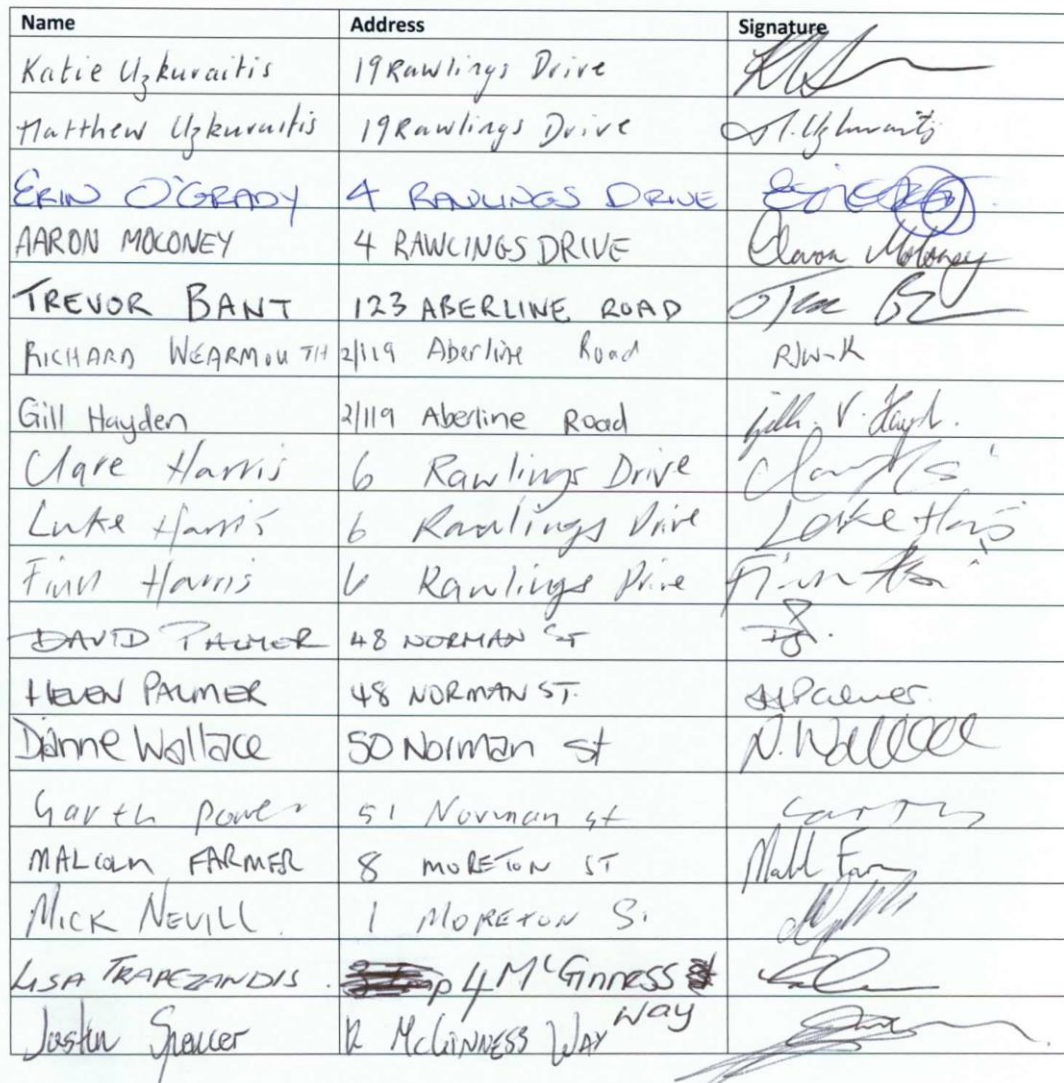 Name Address Signature
Katie Uzkuraitis 19 Rawlings Drive
Matthew Uzkuraitis 19 Rawlings Drive M. Uzkuraitis
ERIN O'GRADY 4 RAWLINGS DRIVE
AARON MOLONEY 4 RAWLINGS DRIVE Aaron Moloney
TREVOR BANT 123 ABERLINE ROAD
RICHARD WEARMOUTH 2/119 Aberline Road
Gill Hayden 2/119 Aberline Road
Clare Harris 6 Rawlings Drive
Luke Harris 6 Rawlings Drive Luke Harris
Finn Harris 6 Rawlings Drive Finn
DAVID PALMER 48 NORMAN ST
HELEN PALMER 48 NORMAN ST. HPalmer
Dianne Wallace 50 Norman st D. Wallace
Garth power 51 Norman st
MALCOLM FARMER 8 MORETON ST
MICK NEVILL 1 MORETON
LISA TRAPEZANDIS 4 McGinness
Way
Justin Spencer McGINNESS WAY